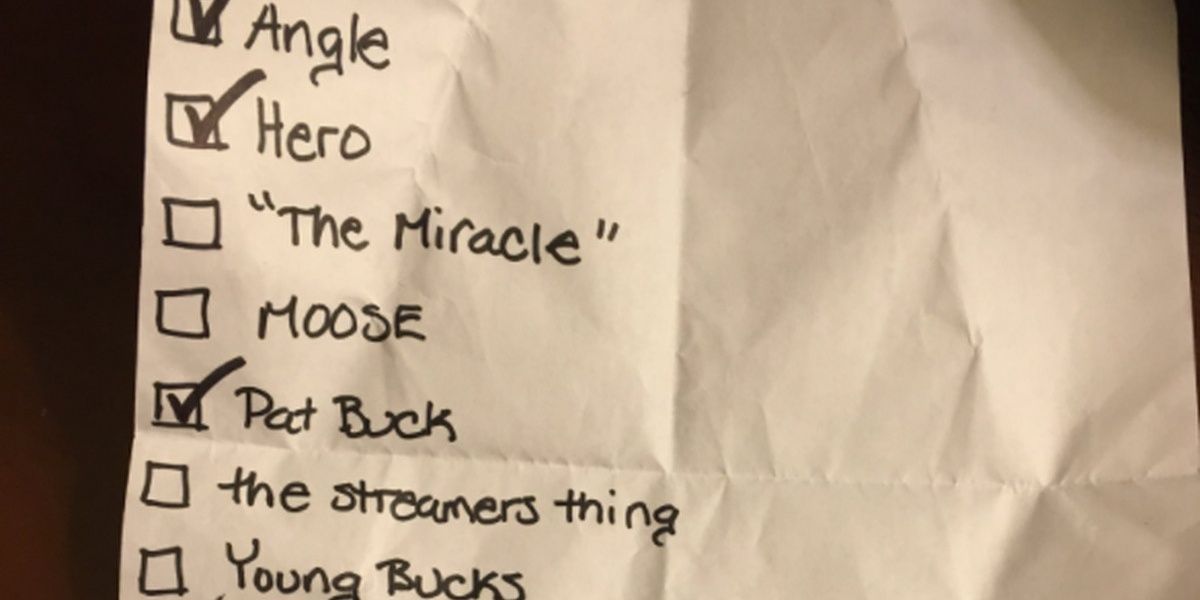 Angle
Hero
"The Miracle"
MOOSE
Pat Buck
the streamers thing
Young Bucks